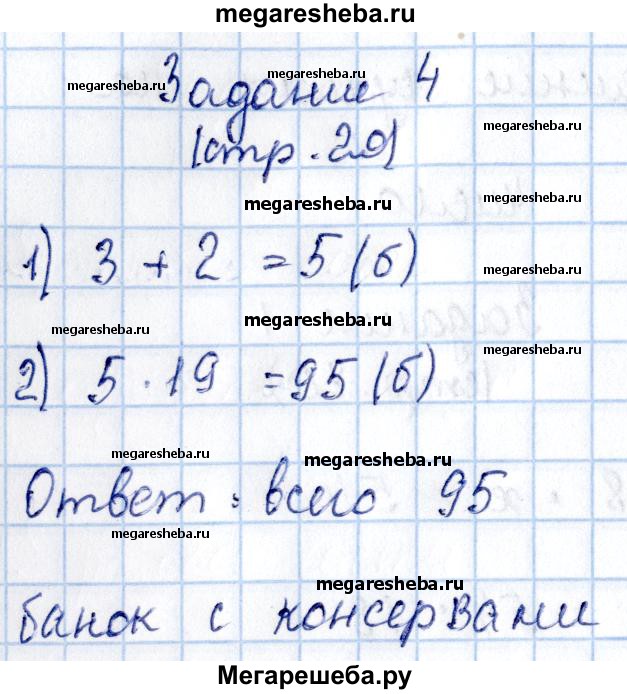 megaresheba.ru
megaresheba.ru megaresheba.ru
Задание 4
megaresheba.ru
(стр. 29)
megaresheba.ru
megaresheba.ru
1) 3 + 2 = 5 (б)
megaresheba.ru
megaresheba.ru megaresheba.ru
megaresheba.ru
2) 5 · 19 = 95 (б)
megaresheba.ru megaresheba.ru
Ответ: всего 95
megaresheba.ru
megaresheba.ru
банок с консервами
Мегарешеба.ру